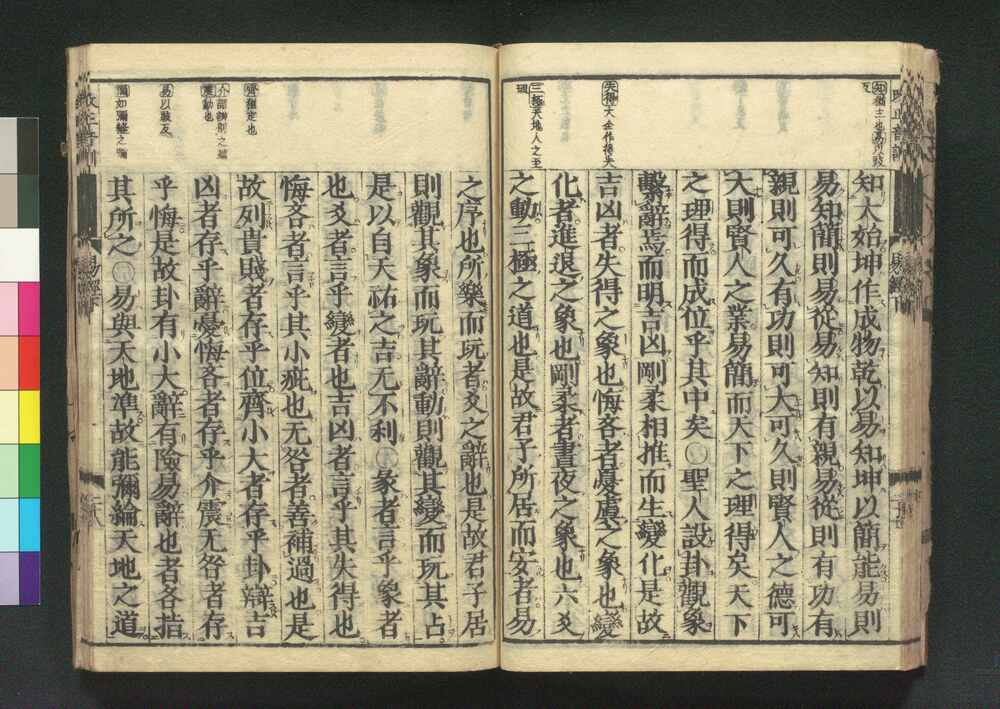 知猶主也易以豉
反
失得大全作得失
三極天地人之至
理
知大始坤作成物乾以易知坤以簡能易則
易知簡則易從易知則有親易從則有功有
親則可久有功則可大可久則賢人之德可
大則賢人之業易簡而天下之理得矣天下
之理得而成位乎其中矣〇聖人設卦觀象
繫辭焉而明吉凶剛柔相推而生變化是故
吉凶者失得之象也悔吝者憂虞之象也變
化者進退之象也剛柔者晝夜之象也六爻
之動三極之道也是故君子所居而安者易
齊猶定也
介謂辨別之端
震動也
易以豉反
彌如彌縫之彌
之序也所樂而玩者爻之辭也是故君子居
則觀其象而玩其辭動則觀其變而玩其占
是以自天祐之吉无不利〇彖者言乎象者
也爻者言乎變者也吉凶者言乎其失得也
悔吝者言乎其小疵也无咎者善補過也是
故列貴賤者存乎位齊小大者存乎卦辯吉
凶者存乎辭憂悔吝者存乎介震无咎者存
乎悔是故卦有小大辭有險易辭也者各指
其所之〇易與天地準故能彌綸天地之道
易經下